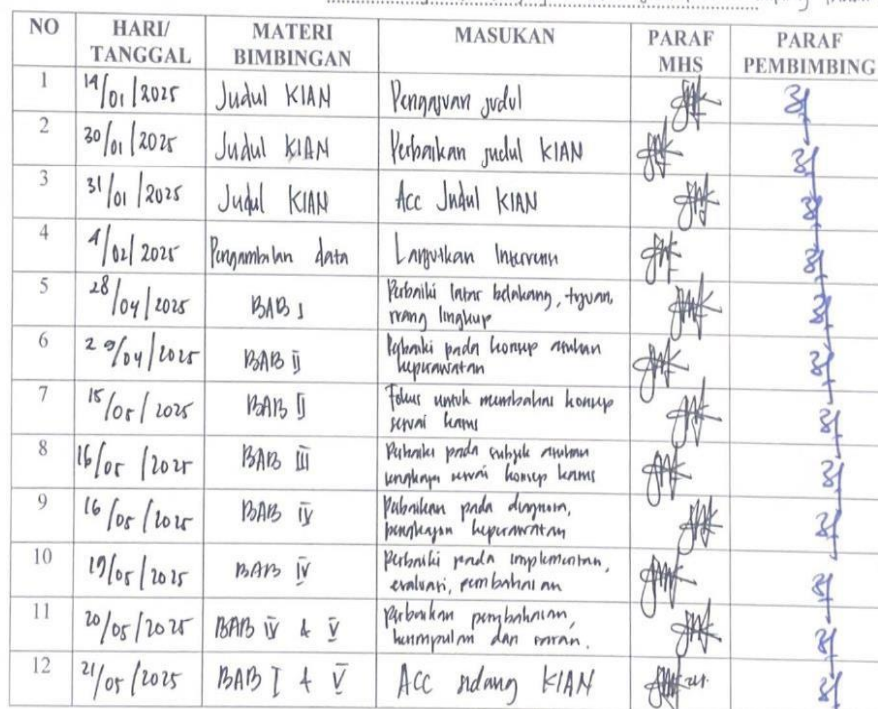 NO HARI/ TANGGAL MATERI BIMBINGAN MASUKAN PARAF MHS PARAF PEMBIMBING
1 14/01/2025 Judul KIAN Pengajuan judul
2 30/01/2025 Judul KIAN Perbaikan judul KIAN
3 31/01/2025 Judul KIAN Acc Judul KIAN
4 4/02/2025 Pengambilan data Lanjutkan Intervensi
5 28/04/2025 BAB I Perbaiki latar belakang, tujuan,
ruang lingkup
6 29/04/2025 BAB II Perbaiki pada konsep asuhan
keperawatan
7 15/05/2025 BAB II Fokus untuk membahas konsep
sesuai kasus
8 16/05/2025 BAB III Perbaiki pada subjek asuhan
lengkapi sesuai konsep kasus
9 16/05/2025 BAB IV Perbaikan pada diagnosa,
pengkajian keperawatan
10 19/05/2025 BAB IV Perbaiki pada implementasi,
evaluasi, pembahasan
11 20/05/2025 BAB IV & V Perbaikan pembahasan,
kesimpulan dan saran.
12 21/05/2025 BAB I + V Acc sidang KIAN